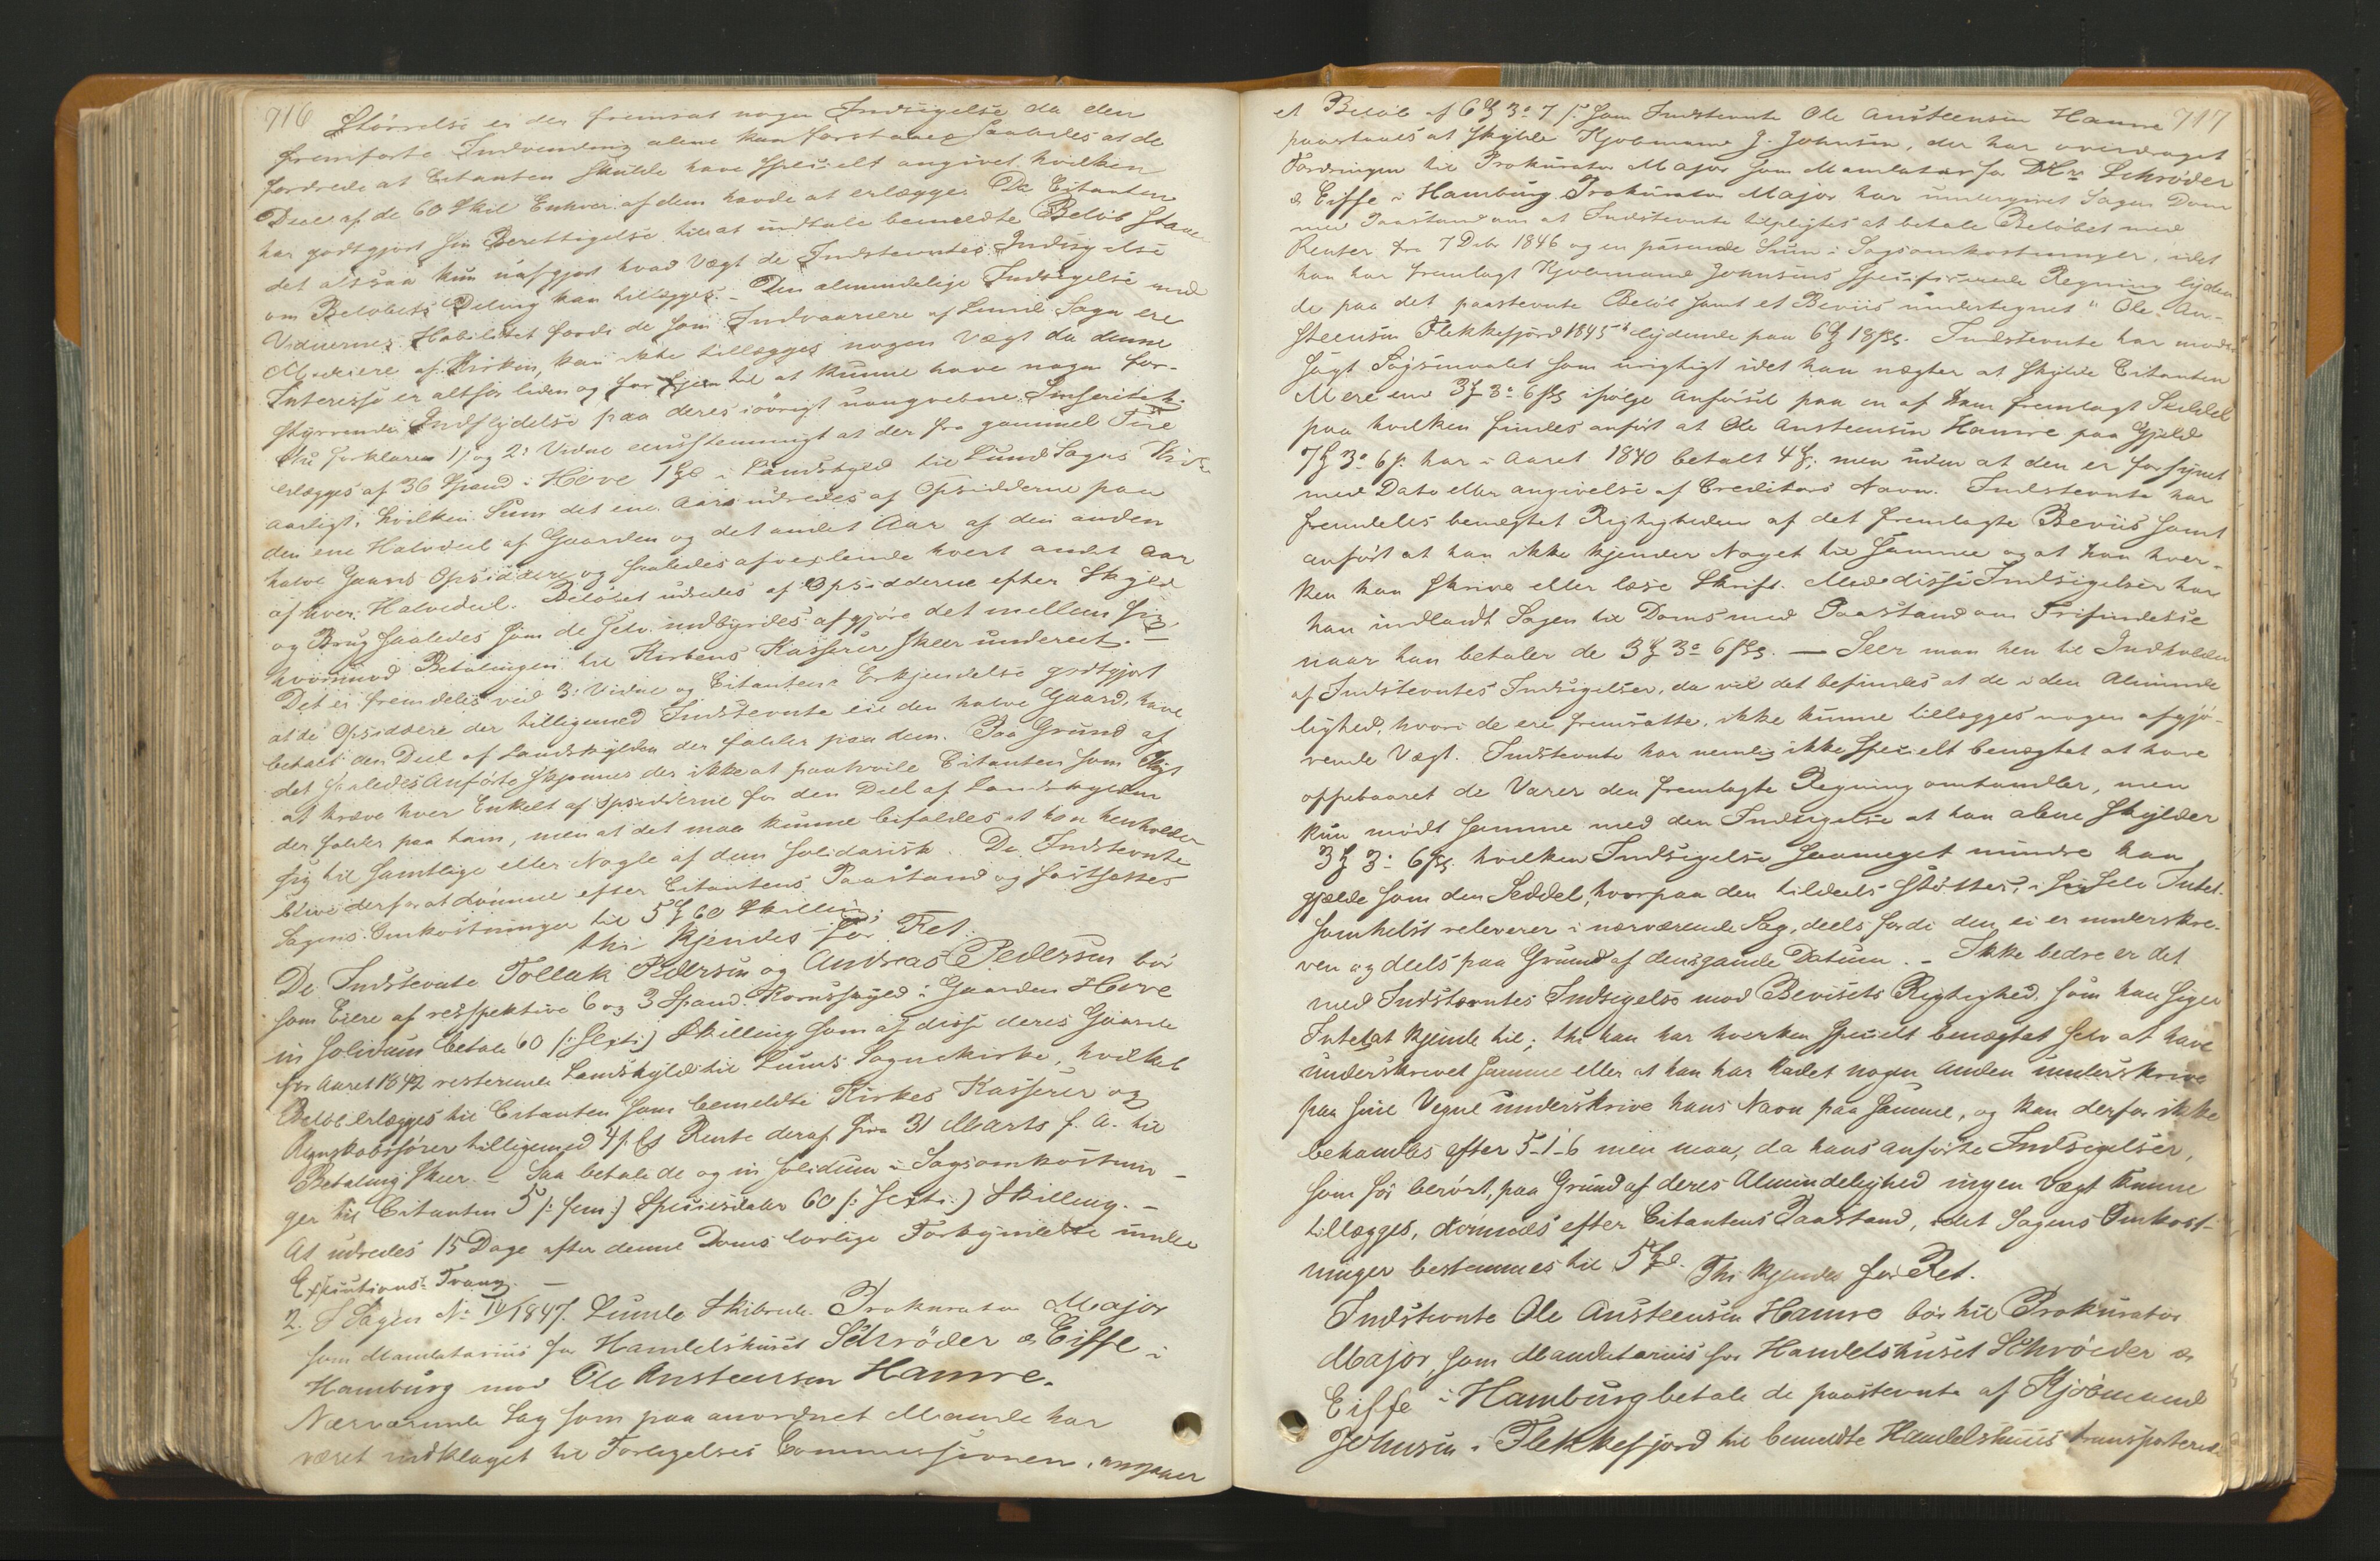 716
Størrelse er der fremsat nogen Indsigelse da den
fremførte Indvending alene kan forstaaes saaledes at de
fordrede at Citanten skulde have specielt angivet hvilken
Deel af de 60 Skil Enhver af dem havde at erlægge. Da Citanten
har godtgjort sin Berettigelse til at indtale bemeldte Beløb staar
det altsaa kun uafgjort hvad Vægt de Indstevntes Indsigelse
om Beløbets Deling kan tillægges. - Den almindelige Indsigelse mod
Vidnernes Habilitet fordi de som Indvaanere af Lunde Sogn ere
Medeiere af Kirken, kan ikke tillægges nogen Vægt da denne
Interesse er altfor liden og for fjern til at kunne have nogen for-
styrrende Indflydelse paa deres iøvrigt uangrebne Sinceritet.
Nu forklarer 1. og 2. Vidne eenstemmigt at der fra gammel Tid
erlægges af 36 Spand i Hove 1 Spd i Landskyld til Lund Sogns Kirke
aarligt, hvilken Sum det ene Aar udredes af Opsidderne paa
den ene Halvdeel af Gaarden og det andet Aar af den anden
halve Gaards Opsiddere og saaledes afvexlende hvert andet Aar
af hver Halvdeel. Beløbet udredes af Opsidderne efter Skyld
og Brug saaledes som de selv indbyrdes afgjøre det mellem sig
hvorimod Betalingen til Kirkens Kasserer skeer undereet. -
Det er fremdeles ved 3. Vidne og Citantens Erkjendelse godtgjort
at de Opsiddere der tilligemed Indstevnte eie den halve Gaard, have
betalt den Deel af Landskylden der falder paa dem. Paa Grund af
det saaledes Anførte skjønnes der ikke at paahvile Citanten som Pligt
at kræve hver Enkelt af Opsidderne for den Deel af Landskylden
der falder paa ham, men at det maa kunne bifaldes at han henholder
sig til samtlige eller Nogle af dem solidarisk. De Indstevnte
blive derfor at dømme efter Citantens Paastand og fastsættes
Sagens Omkostninger til 5 Spd 60 Skilling;
thi kjendes for Ret:
De Indstevnte Tollak Pedersen og Andreas Pedersen bør
som Eiere af respektive 6 og 3 Spand Kornskyld i Gaarden Hove
in solidum betale 60 (: sexti :) Skilling som af disse deres Gaarde
for Aaret 1842 resterende Landskyld til Lunds Sognekirke, hvilket
Beløb erlægges til Citanten som bemeldte Kirkes Kasserer og
Regnskabsfører tilligemed 4 p. Ct Rente deraf fra 31 Marts f. A. til
Betaling skeer. - Saa betale de og in solidum i Sagsomkostnin-
ger til Citanten 5 (: fem :) Speciesdaler 60 (: sexti :) Skilling. -
At udredes 15 Dage efter denne Doms lovlige Forkyndelse under
Exekutions-Tvang. -
2. I Sagen No 10/1847. Lunde Skibrede. Prokurator Major
som Mandatarius for Handelshuset Schrøder & Eiffe i
Hamburg mod Ole Ansteensen Hamre.
Nærværende Sag som paa anordnet Maade har
været indklaget til Forligelses Commissionen, angaaer
717
et Beløb af 6 Spd 3 o 7 s. som Indstevnte Ole Ansteensen Hamre
paastaaes at skylde Kjøbmand J. Johnsen, der har overdraget
Fordringen til Prokurator Major som Mandatar for DHr. Schrøder
& Eiffe i Hamburg. Prokurator Major har undergivet Sagen Dom
med Paastand om at Indstevnte tilpligtes at betale Beløbet med
Renter fra 7 Debr 1846 og en passende Sum i Sagsomkostninger, idet
han har fremlagt Kjøbmand Johnsens specificerede Regning lyden-
de paa det paastevnte Beløb samt et Beviis undertegnet "Ole An-
steensen Flekkefjord 1845" lydende paa 6 Spd 18 s. Indstevnte har modsagt
Søgsmaalet som urigtigt idet han nægter at skylde Citanten
Mere end 3 Spd 3 o 6 s ifølge Anførsel paa en af ham fremlagt Seddel
paa hvilken findes anført at Ole Ansteensen Hamre paa Gjeld
7 Spd 3 o 6 s. har i Aaret 1840 betalt 4 Spd; men uden at den er forsynet
med Dato eller angivelse af Creditors Navn. Indstevnte har
fremdeles benægtet Rigtigheden af det fremlagte Beviis samt
anført at han ikke kjender Noget til Samme og at han hver-
ken kan skrive eller læse Skrift. Med disse Indsigelser har
han indladt Sagen til Doms med Paastand om Frifindelse
naar han betaler de 3 Spd 3 o 6 s. - Seer man hen til Indholdet
af Indstevntes Indsigelser, da vil det befindes at de i den Alminde-
lighed, hvori de ere fremsatte, ikke kunne tillægges nogen afgjø-
rende Vægt. Indstevnte har nemlig ikke specielt benægtet at have
oppebaaret de Varer den fremlagte Regning omhandler, men
kun mødt samme med den Indsigelse at han alene skylder
3 Spd 3 o 6 s. hvilken Indsigelse saameget mindre kan
gjælde som den Seddel, hvorpaa den tildeels støttes, i sig selv Intet-
somhelst releverer i nærværende Sag, deels fordi den ei er underskre-
ven og deels paa Grund af dens gamle Datum. - Ikke bedre er det
med Indstevntes Indsigelse mod Bevisets Rigtighed, som han siger
Intet at kjende til; thi han har hverken specielt benægtet selv at have
underskrevet Samme eller at han har ladet nogen Anden underskrive
paa sine Vegne underskrive hans Navn paa Samme, og kan derfor ikke
behandles efter 5-1-6 men maa, da hans anførte Indsigelser,
som før berørt, paa Grund af deres Almindelighed ingen Vægt kunne
tillægges, dømmes efter Citantens Paastand, idet Sagens Omkost-
ninger bestemmes til 5 Spd. Thi kjendes for Ret.
Indstevnte Ole Ansteensen Hamre bør til Prokurator
Major, som Mandatarius for Handelshuset Schrøder &
Eiffe i Hamburg betale de paastevnte af Kjøbmand
Johnsen i Flekkefjord til bemeldte Handelshuus transporterede